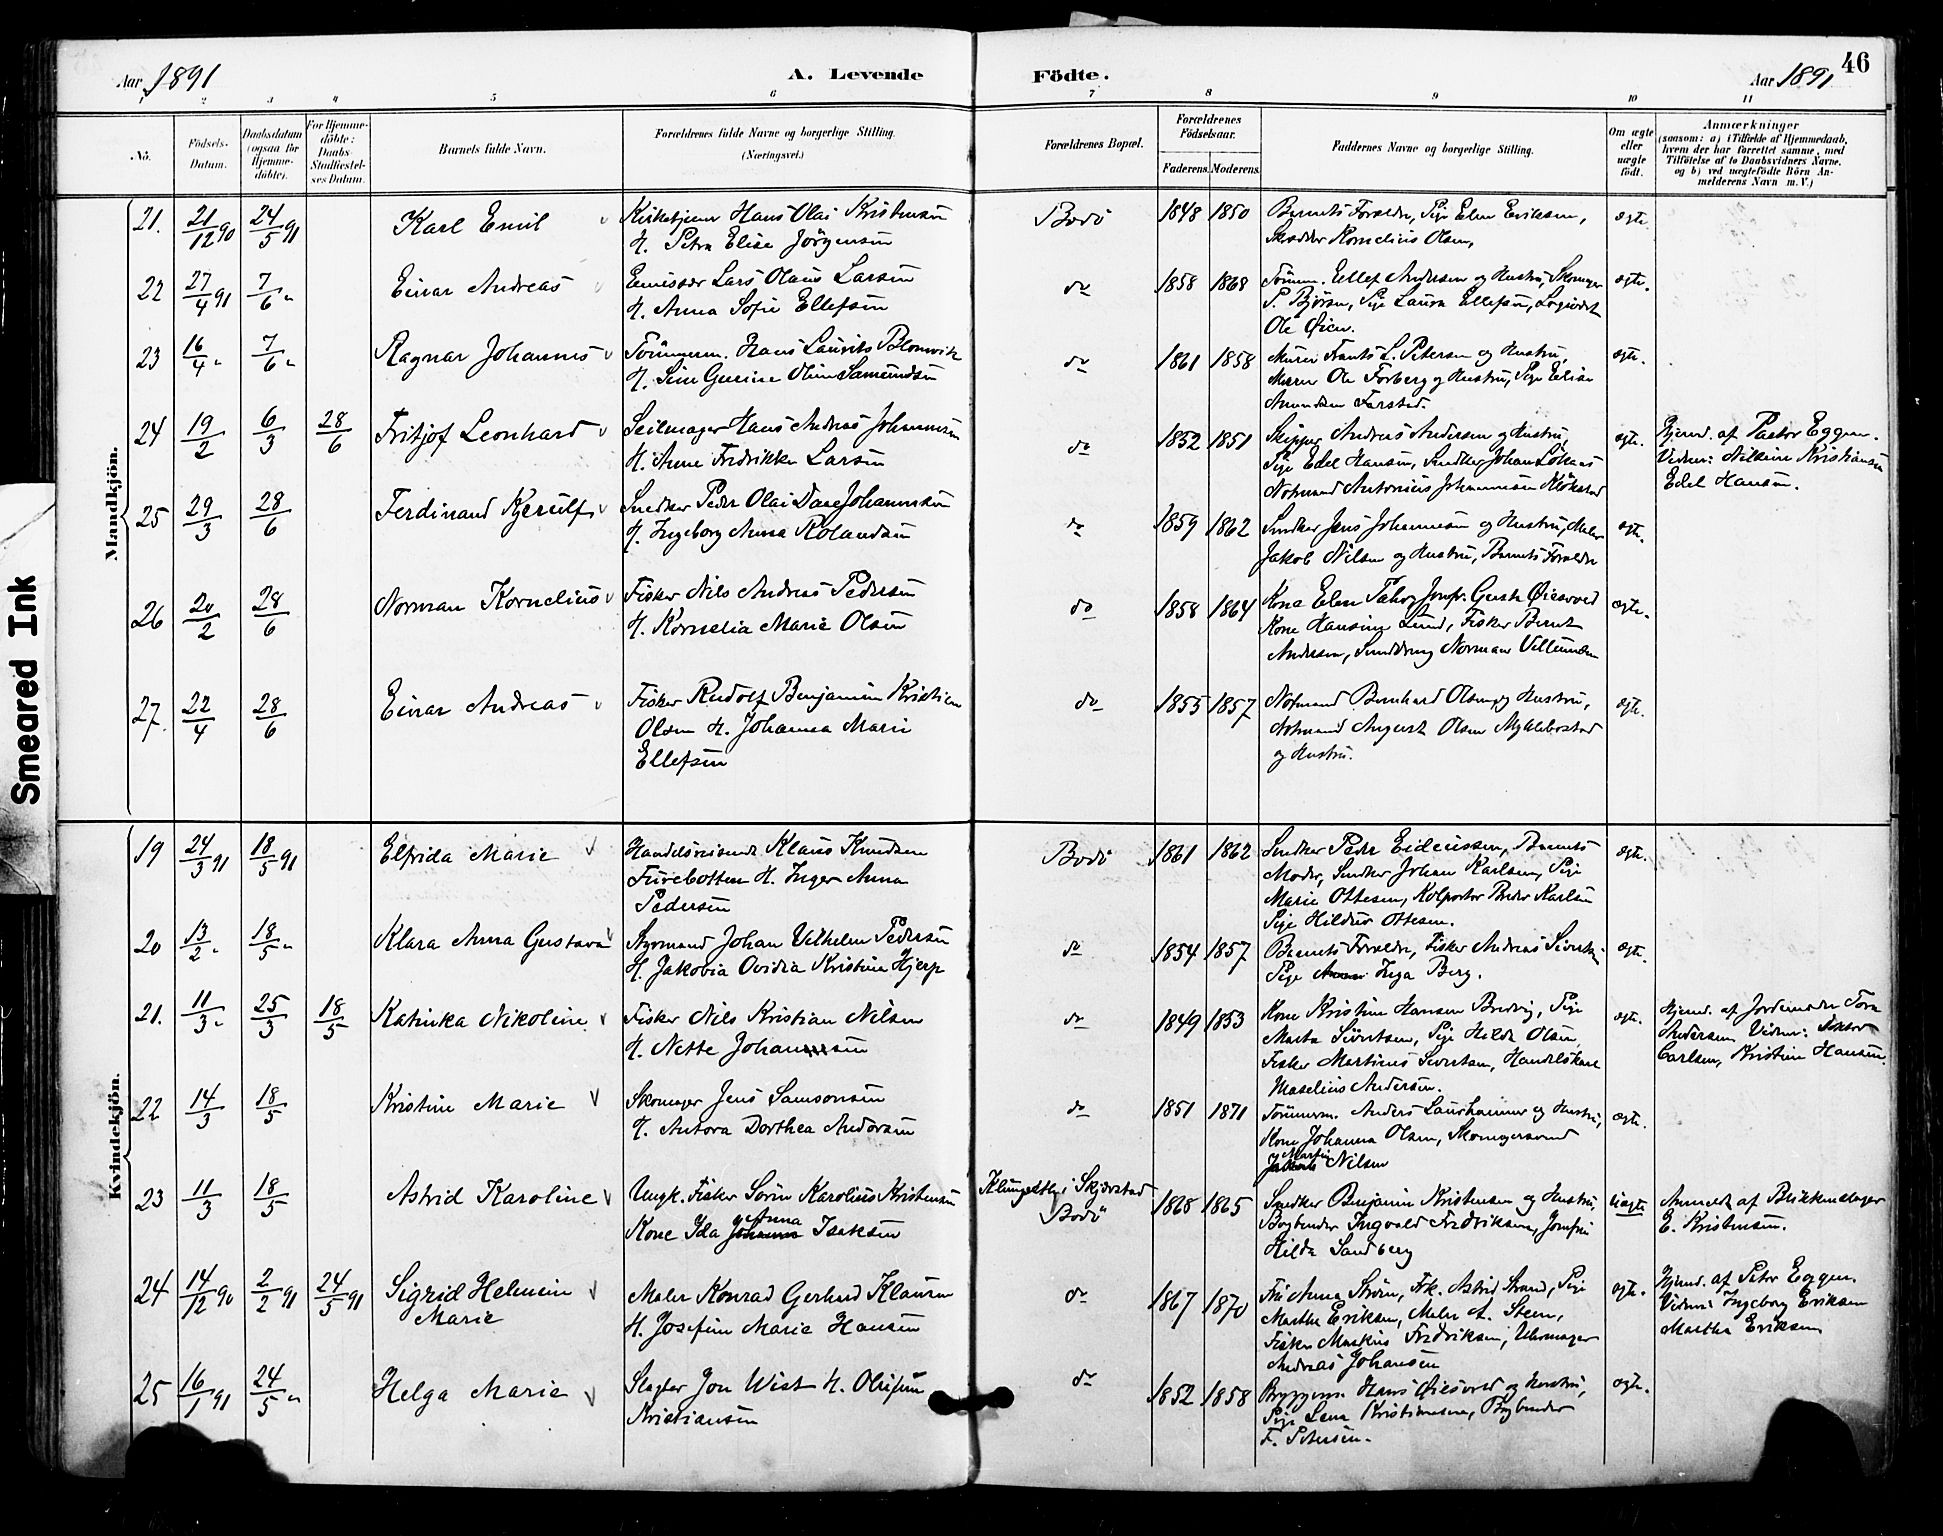 46
Aar 1891
A. Levende Fødte.
Aar 1891
1 2 3 4 5 6 7 8 9 10 11
No.
Fødsels-Datum.
Daabsdatum (ogsaa for Hjemme-døbte).
For Hjemme-døbte: Daabs Stadfæstel-ses Datum.
Barnets fulde Navn.
Forældrenes fulde Navne og borgerlige Stilling. (Næringsvei.)
Forældrenes Bopæl.
Forældrenes Fødselsaar.
Faderens. Moderens.
Faddernes Navne og borgerlige Stilling.
Om ægte eller uægte født.
Anmærkninger
(saasom: a) i Tilfælde af Hjemmedaab, hvem der har forrettet samme, med Tilføielse af to Daabsvidners Navne, og b) ved uægtefødte Børn An-melderens Navn m. V.)
Smeared Ink
Mandkjøn.
21. 21/12 90 24/5 91 Karl Emil Kirketjener Hans Olai Kristensen Bodö 1848 1850 Barnets Forældre, Pige Elen Eriksen, ægte
H. Petra Elise Jörgensen Skrædder Kornelius Olsen,
22 27/4 91 7/6 " Einar Andreas Emissær Lars Olaus Larsen do 1858 1868 Tömm. Ellef Andersen og Hustru, Skomager ægte.
H. Anna Sofie Ellefsen P. Björsen, Pige Laura Ellefsen,
Ole Öien.
23 16/4 " 7/6 " Ragnar Johannes Tömmerm. Hans Laurits Blomvik do 1861 1858 Murer Frants L. Petersen og Hustru, ægte.
H. Sine Gurine Oline Samundsen Murer Ole Forberg og Hustru, Pige Elise
Amundsen Farstad.
24 19/2 6/3 28/6 Fritjof Leonhard Seilmager Hans Andreas Johannesen do 1852 1851 Skipper Andreas Andersen og Hustru, ægte. Hjemd. af Pastor Eggen.
H. Anne Fredrikke Larsen Pige Edel Hansen, Snedker Johan Löknes Vidner: Nilsine Kristiansen
Notmand Antonius Johannesen Klökstad Edel Hansen.
25 29/3 28/6 Ferdinand Kjerulf Snedker Peder Olai Dass Johannesen do 1859 1862 Snedker Jens Johannesen og Hustru, Maler ægte.
H. Ingeborg Anna Rolandsen Jakob Nilsen og Hustru, Barnets Forældre
26 20/2 28/6 Norman Kornelius Fisker Nils Andreas Pedersen do 1858 1864 Kone Elen Jomfr. Øiesvold ægte.
H. Kornelia Marie Olsen Kone Hansine Lund, Fisker Bernt
Andersen, Norman Villumsen
27. 22/4 28/6 Einar Andreas Fisker Rudolf Benjamin Kristian do 1855 1857 Notmand Bernhard Olsen og Hustru, ægte.
Olsen H. Johanna Marie Notmand August Olsen Myklebostad
Ellefsen og Hustru.
Kvindekjøn.
19 24/3 91 18/5 91 Elfrida Marie Handelsreisende Klaus Knudsen Bodö 1861 1862 Snedker Peder Eideussen, Barnets ægte.
Furebotten H. Inger Anna Moder, Snedker Johan Karlsen, Pige
Pedersen Marie Ottesen, Kolportør Peder Karlsen
Pige Hildur Ottesen.
20 13/2 " 18/5 " Klara Anna Gustava Styrmand Johan Vilhelm Pedersen do 1854 1857 Barnets Forældre, Fisker Andreas Sivertsen ægte.
H. Jakobia Ovidia Kristine Hjerp Pige Inga Berg.
21. 11/3 " 25/3 18/5 Katinka Nikoline Fisker Nils Kristian Nilsen do 1849 1853 Kone Kristine Hansen Bredvig, Pige ægte. Hjemd. af Jordemoder Tora
H. Nette Johansen Marta Sivertsen, Pige Hilda Olsen, Andersen Vidner: Doktor
Fisker Martinus Sivertsen, Handelskarl Carlsen, Kristine Hansen.
Maselius Andersen.
22 14/3 18/5 Kristine Marie Skomager Jens Samsonsen do 1851 1871 Tömmerm. Anders Laurhammer og Hustru, ægte.
H. Antora Dorthea Andorsen Kone Johanna Olsen, Skomagersvend
Martin Nilsen
23 11/3 18/5 Astrid Karoline Ungk. Fisker Sörin Karolius Kristensen Klungset i Skjerstad 1868 1865 Snedker Benjamin Kristensen og Hustru, Uægte Anmeldt af Blikkenslager
Kone Ida Anna Isaksen Bodö Bogbinder Ingvald Fredriksen, Jomfru E. Kristensen.
Hilda Sandberg
24 14/12 90 2/2 91 24/5 91 Sigrid Helmine Maler Konrad Gerhard Klausen do 1867 1870 Fru Anna Ström, Frk. Astrid Strand, Pige ægte. Hjemd. af Pastor Eggen.
Marie H. Josefine Marie Hansen Marthe Eriksen, Maler A. Steen, Vidner: Ingeborg Eriksen
Fisker Markus Fredriksen, Uhrmager Martha Eriksen
Andreas Johansen
25 16/1 91 24/5 " Helga Marie Slagter Jon Wist H. Olufine do 1852 1858 Bryggerm. Hans Øiesvold og Hustru, ægte.
Kristiansen Pige Lena Kristiansen, Bogbinder
F. Petersen.